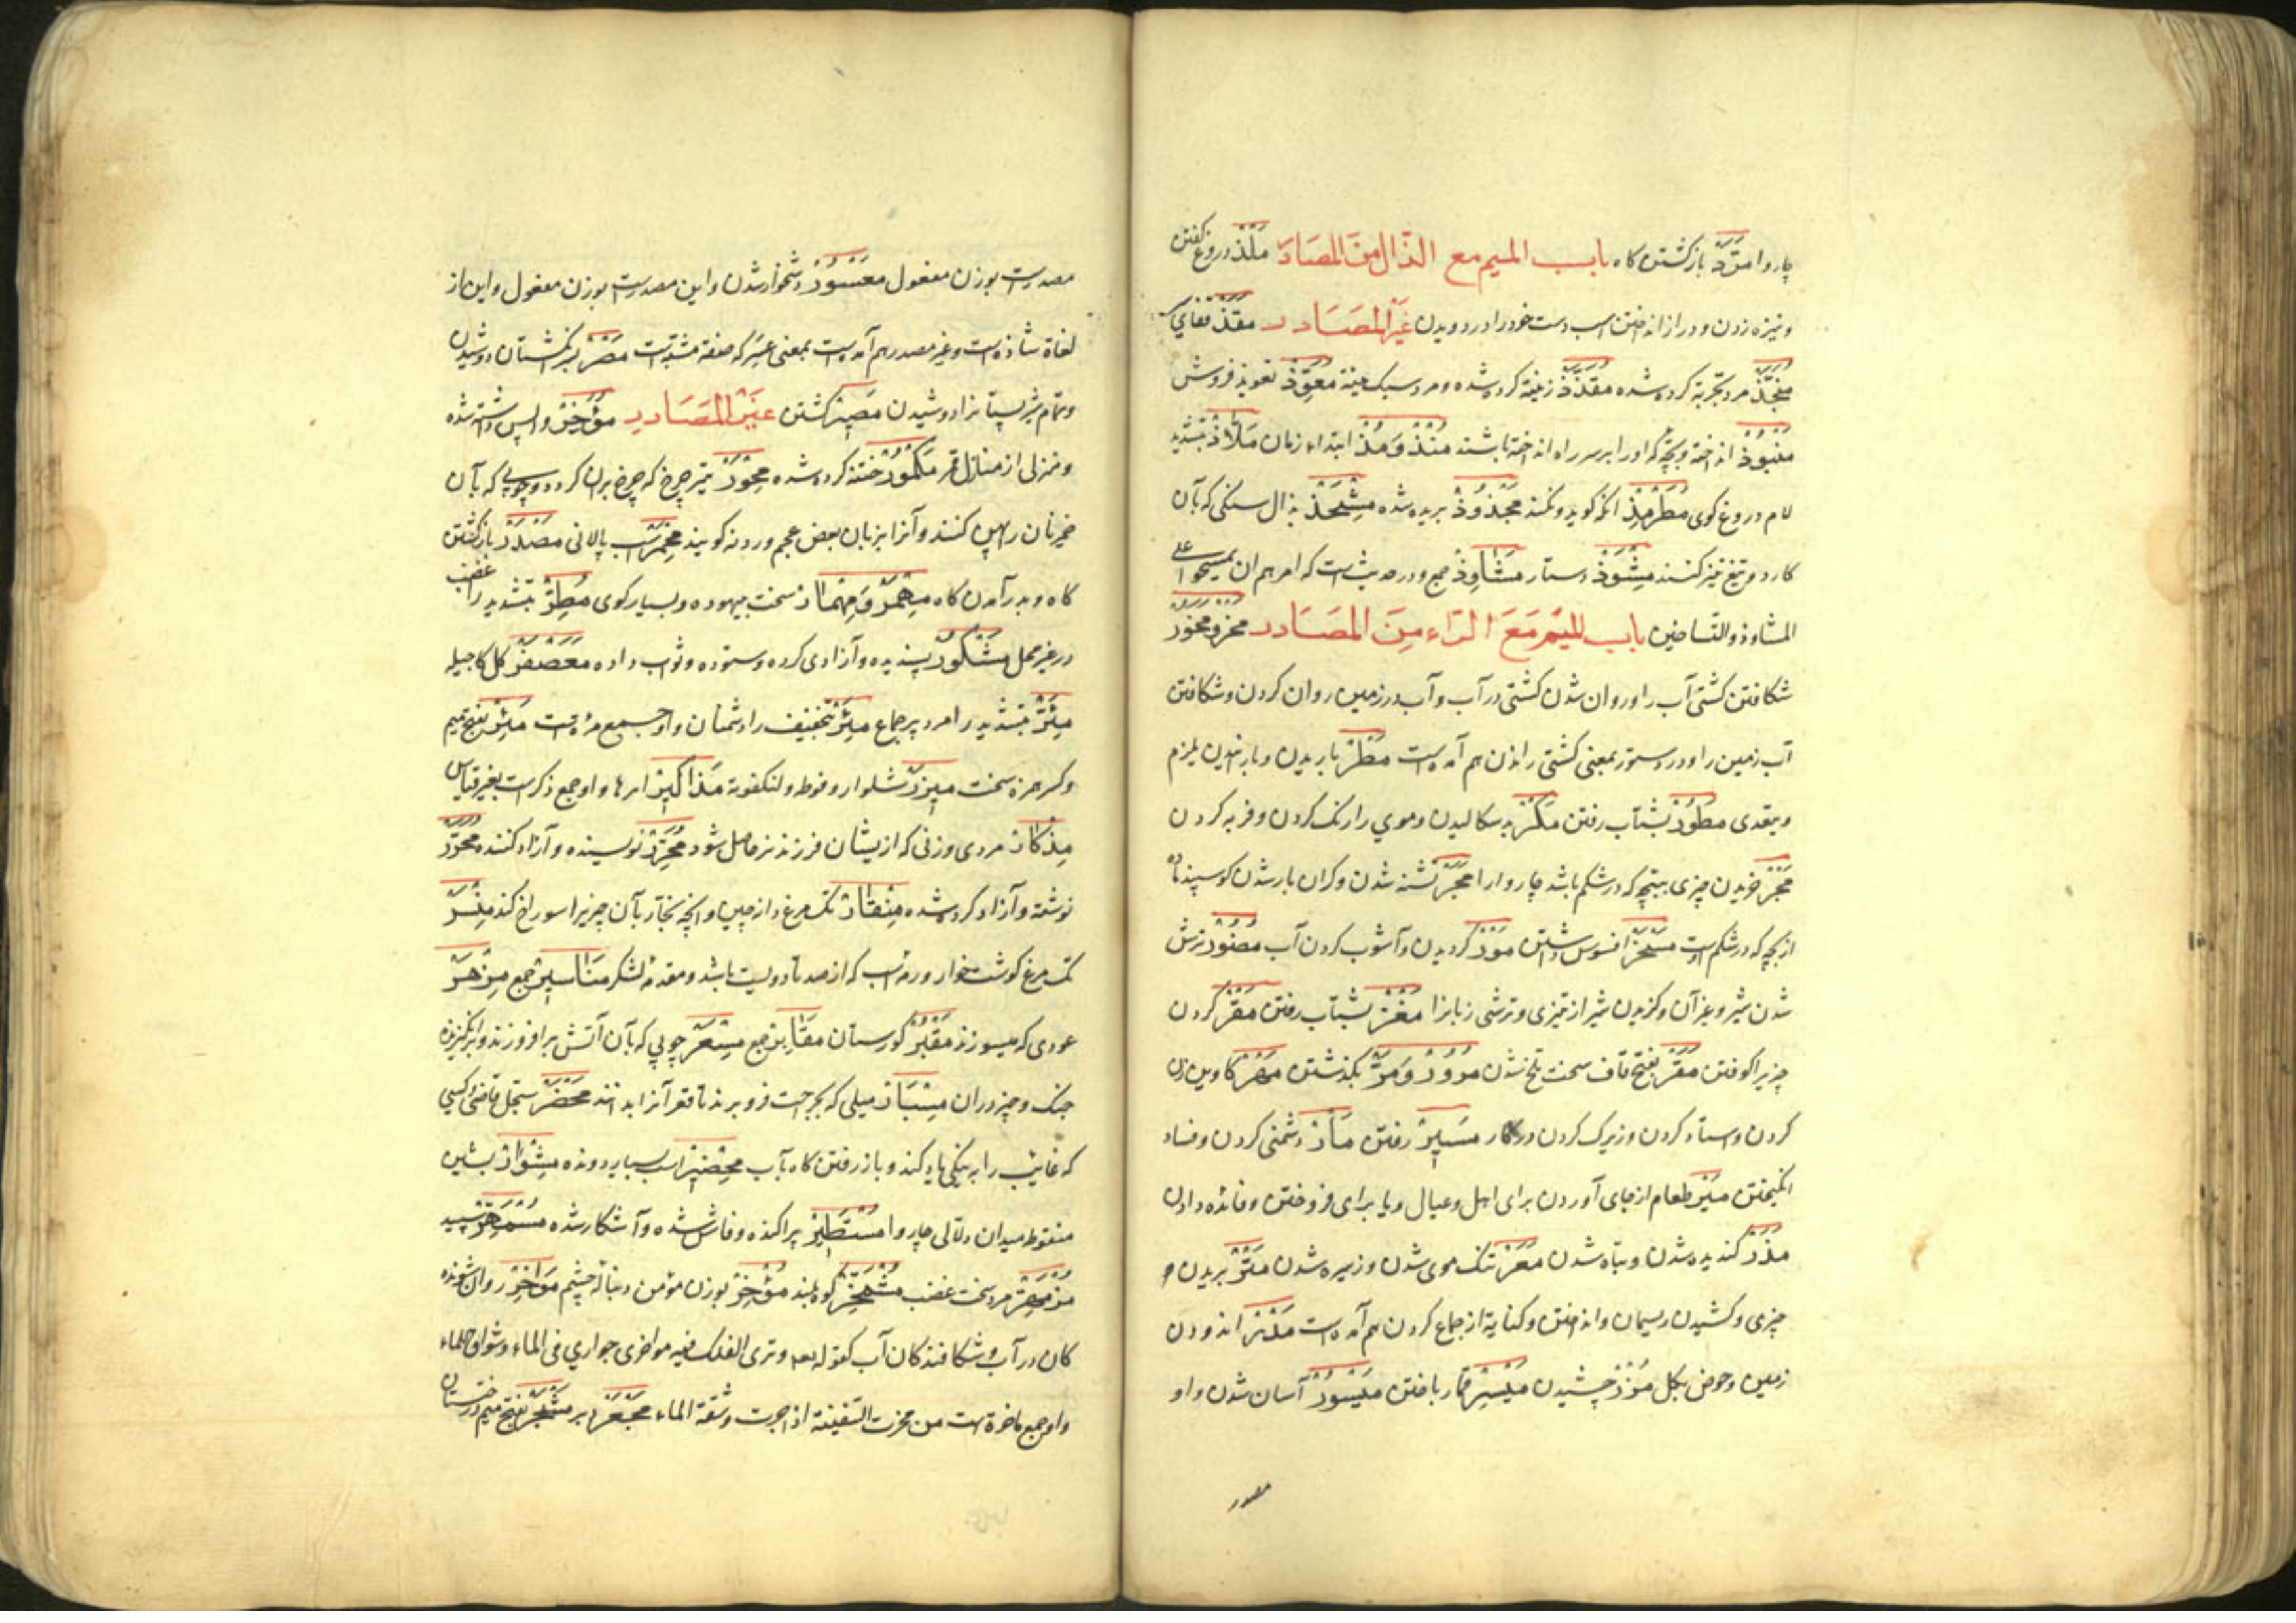 چاروا مَرَدّ بازگشتن کاه باب المیم مع الذّال من المصادر مَلْذ دروغ گفتن
ونیزه زدن و دراز انداختن اسب دست خود را در دویدن غَیر المَصَادر مقذ قفای
مُنَجَّذ مرد تجربه کرده شده مُقَذَّذ زینة کرده شده و مرد سبک هیئة مُعَوِّذ تعویذ فروش
مَنْبُوذ انداخته و بچّه که او را بر سر راه انداخته باشند مُنْذُ وَمُذْ ابتداء زمان مَلّاذ بتشدید
لام دروغ کوی مُطَرْمِذ انکه کوید و نکند مَجْذُوذ بریده شده مِشْحَذ بذال سنکی که بآن
کارد و تیغ تیز کنند مِشْوَذ دستار مَشَاوِذ جمع و در حدیث است که امرهم ان یمسحوا علی
المشاوذ والتساخین باب المیم مَعَ الرّاء مِنَ المَصَادر مخر و مخور
شکافتن کشتی آب را و روان شدن کشتی در آب و آب در زمین روان کردن و شکافتن
آب زمین را و در دستور بمعنی کشتی راندن هم آمده است مَطْر باریدن و بارانیدن یلزم
ویتعدی مُطُور بشتاب رفتن مَکْر بد سکالیدن و موی را رنک کردن و فربه کردن
مَجْر خریدن چیزی ببچّه که در شکم باشد چاروا را مَجَر تشنه شدن و کران بار شدن کوسپند ماده
از بچّه که در شکم اوست مَسْخَر افسوس داشتن مَوْر کردیدن و آشوب کردن آب مُضُور ترش
شدن شیر و غیر آن و کزیدن شیر از تیزی و ترشی زبانرا مَغْر بشتاب رفتن مَقْر کردن
چیزیرا کوفتن مَقَر بفتح قاف سخت تلخ شدن مُرُور وَمَرّ بکذشتن مَهْر کاوین زن
کردن و استاد کردن و زیرک کردن در کار مَسِیر رفتن مَأر دشمنی کردن و فساد
انکیختن مَیْر طعام از جای آوردن برای اهل و عیال و یا برای فروختن و فائده دادن
مَذَر کندیده شدن و تباه شدن مَعَر تنک موی شدن و زیره شدن مَتْر بریدن
چیزی و کشیدن ریسمان و انداختن و کنایة از جماع کردن هم آمده است مَدْر اندودن
زمین و حوض بکل مَزْر چشیدن مَیْسِر قمار باختن مَیْسُور آسان شدن و او
مصدر
مصدرست بوزن مفعول مَعْسُور دشخوار شدن و این مصدرست بوزن مفعول و این از
لغاة شاذه است و غیر مصدر هم آمده است بمعنی عَسِر که صفة مشبّهت مَصْر بسر انکشتان دوشیدن
و تمام شیر پستانرا دوشیدن مَصِیر کشتن غَیْر المَصَادر مُؤَخَّر واپس داشته شده
و منزلی از منازل قمر مَکْمُور ختنه کرده شده مِحْوَر تیر چرخ که چرخ بران کردد و چوبی که بآن
خمیر نان را پهن کنند و آنرا بزبان بعض عجم وردنه کویند مِحْمَر اسب پالانی مَصْدَر بازکشتن
کاه و بدر آمدن کاه مِهْمَر وَمِهْمَار سخت بیهوده و بسیار کوی مُطِرّ بتشدید را غضب
در غیر محل مَشْکُور پسندیده و آزادی کرده و ستوده و ثواب داده مُعَصْفَر کل کاجیله
مِئَرّ بتشدید را مرد پر جماع مِئَر بتخفیف را دشمنان و او جمع مئره است مَئِر بفتح میم
وکسر همزه سخت مِیزَر شلوار و فوطه و لنکفوته مَذَاکِیر نرها و او جمع ذکرست بغیر قیاس
مِذْکَار مردی و زنی که از یشان فرزند نر حاصل شود مُحَرِّر نویسنده و آزاد کننده مُحَرَّر
نوشته و آزاد کرده شده مِنْقَار نک مرغ و از چین و انچه نجّار بآن چیز را سوراخ کند مِنْسَر
نک مرغ کوشت خوار و رمه اسب که از صد تا دویست باشد و مقدمهٔ لشکر مَنَاسِیر جمع مِزْهَر
عودی که میسوزند مَقْبَر کورستان مَقَابِر جمع مِسْعَر چوبی که بآن آتش برافروزند و برانکیزنده
جنک و چیز دران مِسْبَار میلی که بجراحت فرو برند تا قعر آنرا بدانند مَحْضَر سجل قاضی و کسی
که غائب را به نیکی یاد کند و باز رفتن کاه بآب مِحْضِیر اسب بسیار دونده مِشْوَار بشین
منقوطه میدان دلالی چاروا مُسْتَطِیر پراکنده و فاش شده و آشکار شده
مرد سخت غضب مُشْمَخِرّ کوه بلند مُؤْخِر بوزن مؤمن دنبالهٔ چشم مَوَاخِر روان شونده
کان در آب و شکافندکان آب کقوله تعه وتری الفلک فیه مواخر ای جواری فی الماء وشواق للماء
و او جمع ماخرة است من مخرت السّفینة اذا جرت وشقّت الماء مَجْعَر دبر مَشْجَر بفتح میم درختستان